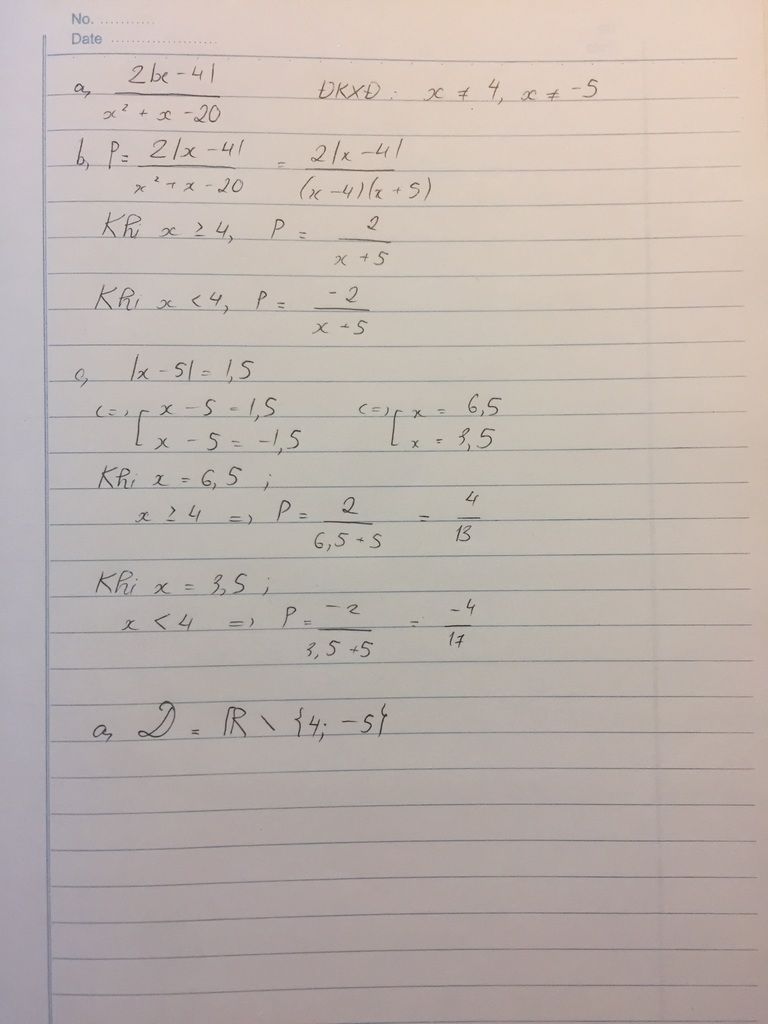 No. ...........
Date .....................
a, 2|x - 4| / x² + x - 20 ĐKXĐ: x ≠ 4, x ≠ -5
b, P = 2|x - 4| / x² + x - 20 = 2|x - 4| / (x - 4)(x + 5)
Khi x ≥ 4, P = 2 / x + 5
Khi x < 4, P = -2 / x + 5
c, |x - 5| = 1,5
<=> [ x - 5 = 1,5 <=> [ x = 6,5
x - 5 = -1,5 x = 3,5
Khi x = 6,5 ;
x ≥ 4 => P = 2 / 6,5 + 5 = 4 / 13
Khi x = 3,5 ;
x < 4 => P = -2 / 3,5 + 5 = -4 / 17
a, D = ℝ \ {4; -5}